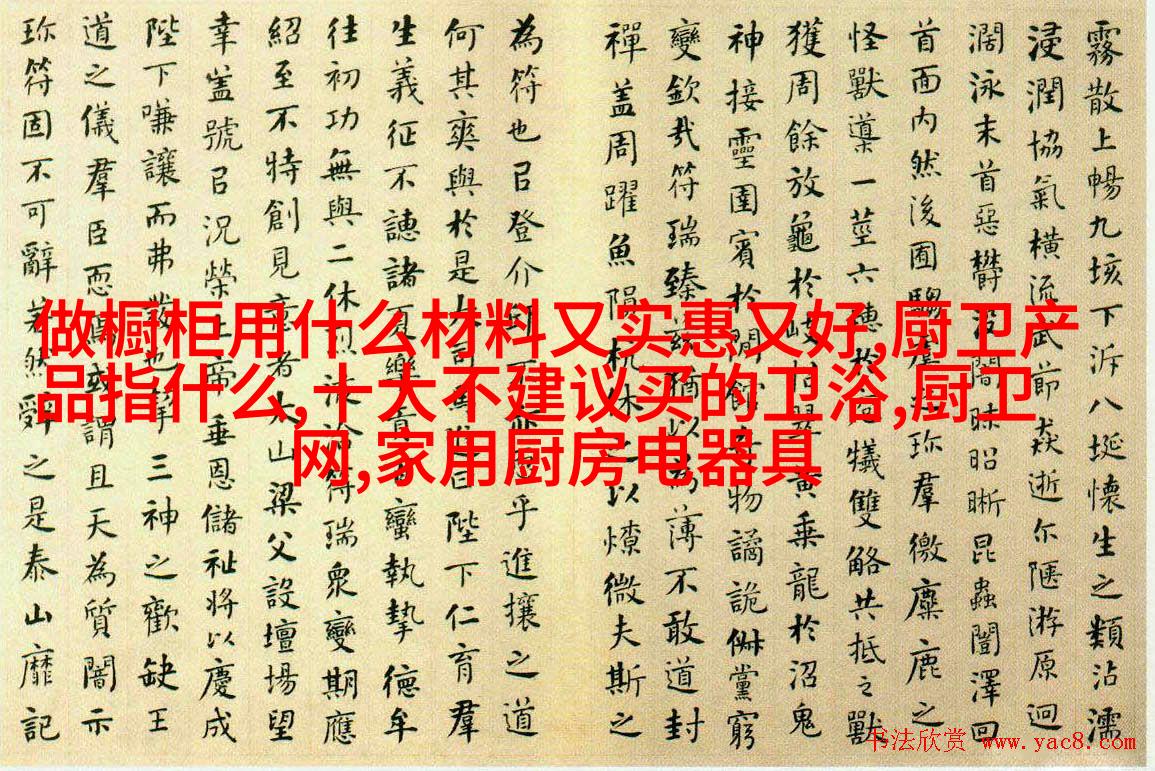 霧散上暢九垓下泝八埏懷生之類沾濡
浸潤協氣橫流武節猋逝尓陿游原迥
濶泳末首惡欝沒闇昧昭晰昆蟲闓澤回
首面內然後囿騶虞之珎羣徼麋鹿之
怪獸導一莖六穗於犧雙觡共抵之獸
獲周餘放龜於岐招翠黃乘龍於沼鬼
神接靈圉賓於閒館奇物譎詭俶黨窮
變欽哉符瑞臻茲猶以為薄不敢道封
禪盖周躍魚隕杭休之以燎微夫斯之
為符也㠯登介丘不亦恧乎進攘之道
何其爽與於是大司馬進曰陛下仁育羣
生義征不譓諸夏樂貢百蠻執摯德牟
往初功無與二休烈浹洽符瑞衆變期應
紹至不特創見意者太山梁父設壇場望
幸盖號㠯況榮上帝垂恩儲祉將以慶成
陛下嗛讓而弗發也挈三神之歡缺王
道之儀羣臣恧焉或謂且天為質闇示
珎符固不可辭若然辤之是泰山靡記
做橱柜用什么材料又实惠又好,厨卫产
品指什么,十大不建议买的卫浴,厨卫
网,家用厨房电器具
书法欣赏 www.yac8.com